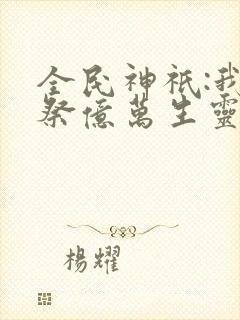 全民神祇:我
祭億萬生靈
楊耀